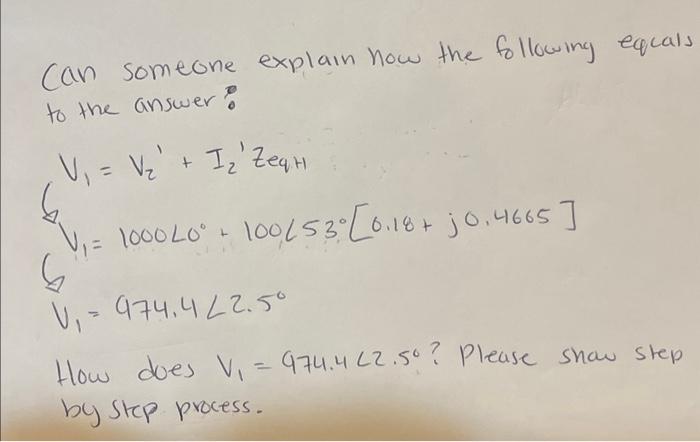 Can someone explain how the following equals
to the answer?
V₁ = V₂' + I₂' ZeqH
V₁ = 1000∠0° + 100∠53° [0.18 + j0.4665]
V₁ = 974.4∠2.5°
How does V₁ = 974.4∠2.5°? Please show step
by step process.